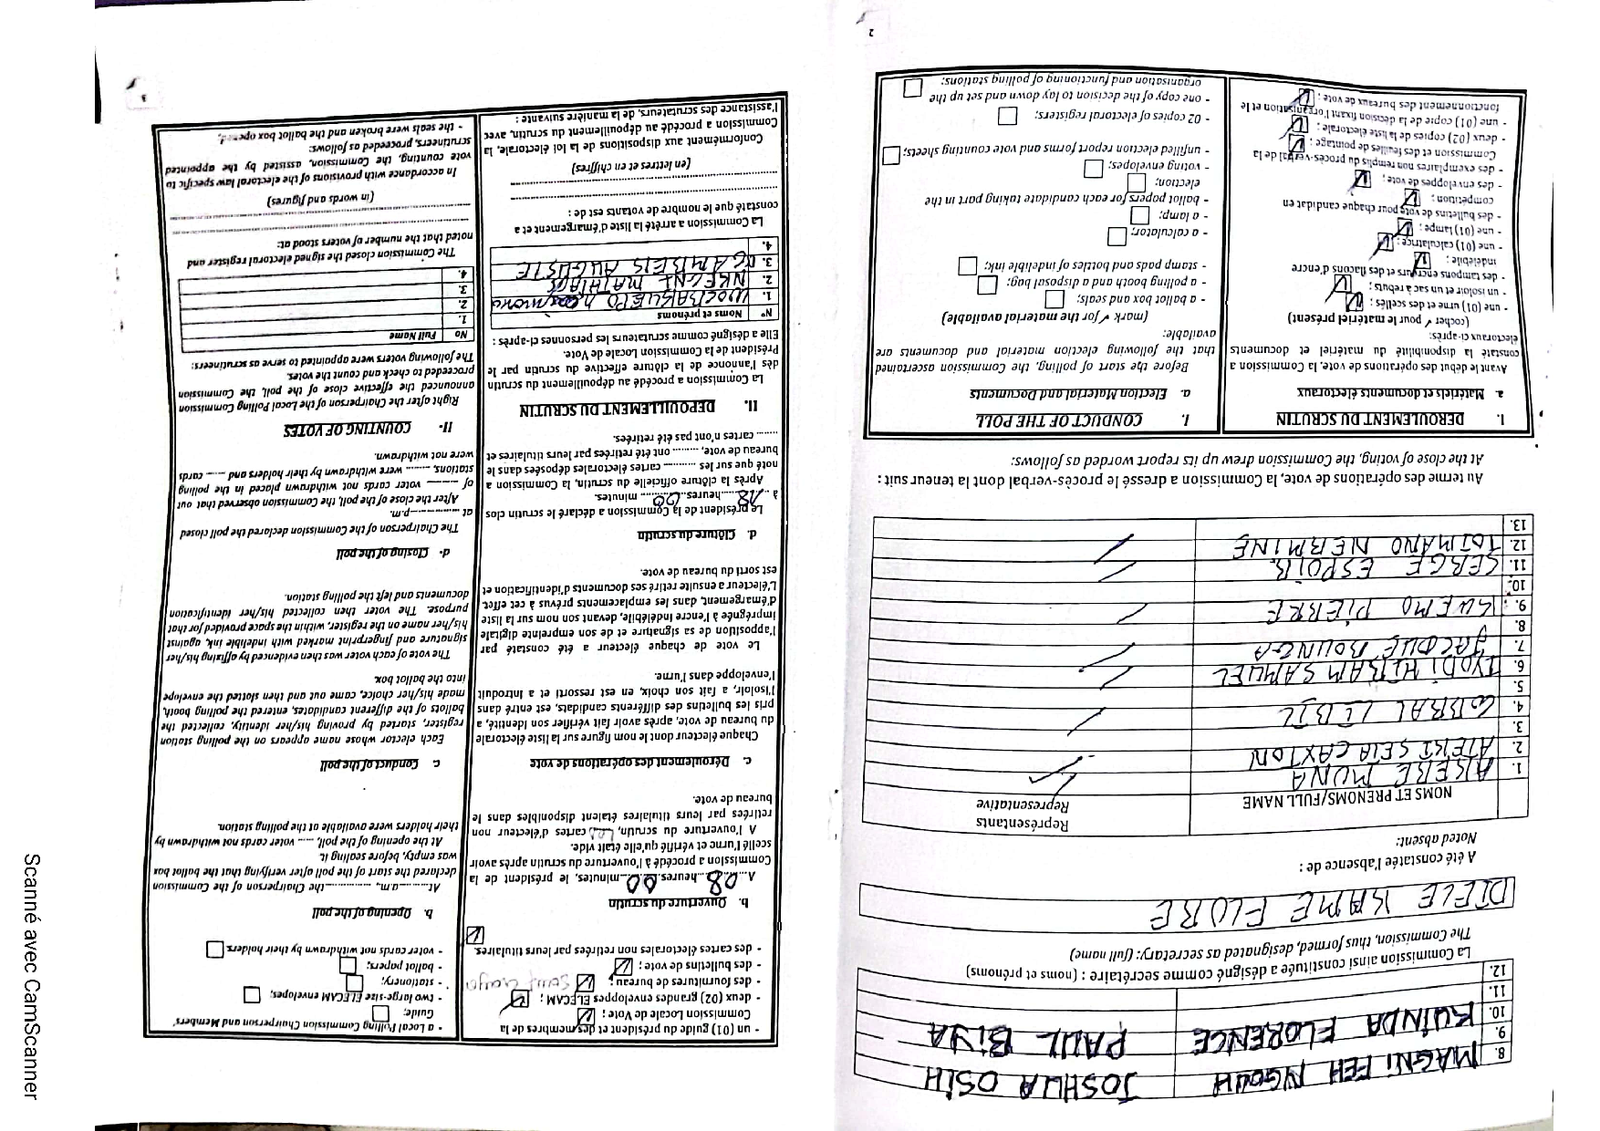 8. MAGNI FEH NGOUH JOSHUA OSIH
9. KUINDA FLORENCE PAUL BIYA
10.
11.
12.
La Commission ainsi constituée a désigné comme secrétaire : (noms et prénoms)
The Commission, thus formed, designated as secretary: (full name)
DIELE KAME FLORE
A été constatée l'absence de :
Noted absent:
NOMS ET PRENOMS/FULL NAME
Représentants
Representative
1. AKERE MUNA
2. ATEKI SETA CAXTON
3.
4. CABRAL LIBII
5.
6. IYODI HIRAM SAMUEL
7. JACQUE BOUNGA
8.
9. GUEMO PIERRE
10.
11. SERGE ESPOIR
12. TOIMANO NERMINE
13.
Au terme des opérations de vote, la Commission a dressé le procès-verbal dont la teneur suit :
At the close of voting, the Commission drew up its report worded as follows:
I. DEROULEMENT DU SCRUTIN
a. Matériels et documents électoraux
Avant le début des opérations de vote, la Commission a
constaté la disponibilité du matériel et documents
électoraux ci-après:
(cocher ✓ pour le matériel présent)
- une (01) urne et des scellés ;
- un isoloir et un sac à rebuts ;
- des tampons encreurs et des flacons d'encre
indélébile ;
- une (01) calculatrice ;
- une (01) lampe ;
- des bulletins de vote pour chaque candidat en
compétition ;
- des enveloppes de vote ;
- des exemplaires non remplis du procès-verbal de la
Commission et des feuilles de pointage ;
- deux (02) copies de la liste électorale ;
- une (01) copie de la décision fixant l'organisation et le
fonctionnement des bureaux de vote ;
I. CONDUCT OF THE POLL
a. Election Material and Documents
Before the start of polling, the Commission ascertained
that the following election material and documents are
available:
(mark ✓ for the material available)
- a ballot box and seals;
- a polling booth and a disposal bag;
- stamp pads and bottles of indelible ink;
- a calculator;
- a lamp;
- ballot papers for each candidate taking part in the
election;
- voting envelopes;
- unfilled election report forms and vote counting sheets;
- 02 copies of electoral registers;
- one copy of the decision to lay down and set up the
organisation and functioning of polling stations;
2
- un (01) guide du président et des membres de la
Commission Locale de Vote ;
- deux (02) grandes enveloppes ELECAM ;
- des fournitures de bureau ;
- des bulletins de vote ;
- des cartes électorales non retirées par leurs titulaires.
b. Ouverture du scrutin
A ..08..heures..00..minutes, le président de la
Commission a procédé à l'ouverture du scrutin après avoir
scellé l'urne et vérifié qu'elle était vide.
A l'ouverture du scrutin, cartes d'électeur non
retirées par leurs titulaires étaient disponibles dans le
bureau de vote.
c. Déroulement des opérations de vote
Chaque électeur dont le nom figure sur la liste électorale
du bureau de vote, après avoir fait vérifier son identité, a
pris les bulletins des différents candidats, est entré dans
l'isoloir, a fait son choix, en est ressorti et a introduit
l'enveloppe dans l'urne.
Le vote de chaque électeur a été constaté par
l'apposition de sa signature et de son empreinte digitale
imprégnée à l'encre indélébile, devant son nom sur la liste
d'émargement, dans les emplacements prévus à cet effet.
L'électeur a ensuite retiré ses documents d'identification et
est sorti du bureau de vote.
d. Clôture du scrutin
Le président de la Commission a déclaré le scrutin clos
à ..18..heures..00..minutes.
Après la clôture officielle du scrutin, la Commission a
noté que sur les ......... cartes électorales déposées dans le
bureau de vote, ......... ont été retirées par leurs titulaires et
......... cartes n'ont pas été retirées.
II. DEPOUILLEMENT DU SCRUTIN
La Commission a procédé au dépouillement du scrutin
dès l'annonce de la clôture effective du scrutin par le
Président de la Commission Locale de Vote.
Elle a désigné comme scrutateurs les personnes ci-après :
N° Noms et prénoms
1.
2. NKEGNI MATHIAS
3. AUGUSTE
4.
La Commission a arrêté la liste d'émargement et a
constaté que le nombre de votants est de :
(en lettres et en chiffres)
Conformément aux dispositions de la loi électorale, la
Commission a procédé au dépouillement du scrutin, avec
l'assistance des scrutateurs, de la manière suivante :
- a Local Polling Commission Chairperson and Members'
Guide;
- two large-size ELECAM envelopes;
- stationery;
- ballot papers;
- voter cards not withdrawn by their holders.
b. Opening of the poll
At.........a.m., ............the Chairperson of the Commission
declared the start of the poll after verifying that the ballot box
was empty, before sealing it.
At the opening of the poll, ..... voter cards not withdrawn by
their holders were available at the polling station.
c. Conduct of the poll
Each elector whose name appears on the polling station
register, started by proving his/her identity, collected the
ballots of the different candidates, entered the polling booth,
made his/her choice, came out and then slotted the envelope
into the ballot box.
The vote of each voter was then evidenced by affixing his/her
signature and fingerprint marked with indelible ink, against
his/her name on the register, within the space provided for that
purpose. The voter then collected his/her identification
documents and left the polling station.
d- Closing of the poll
The Chairperson of the Commission declared the poll closed
at ...............p.m.
After the close of the poll, the Commission observed that out
of ........ voter cards not withdrawn placed in the polling
stations, ........ were withdrawn by their holders and ...... cards
were not withdrawn.
II- COUNTING OF VOTES
Right after the Chairperson of the Local Polling Commission
announced the effective close of the poll, the Commission
proceeded to check and count the votes.
The following voters were appointed to serve as scrutineers:
No Full Name
1.
2.
3.
4.
The Commission closed the signed electoral register and
noted that the number of voters stood at:
(in words and figures)
In accordance with provisions of the electoral law specific to
vote counting, the Commission, assisted by the appointed
scrutineers, proceeded as follows:
- the seals were broken and the ballot box opened,
3
Scanné avec CamScanner